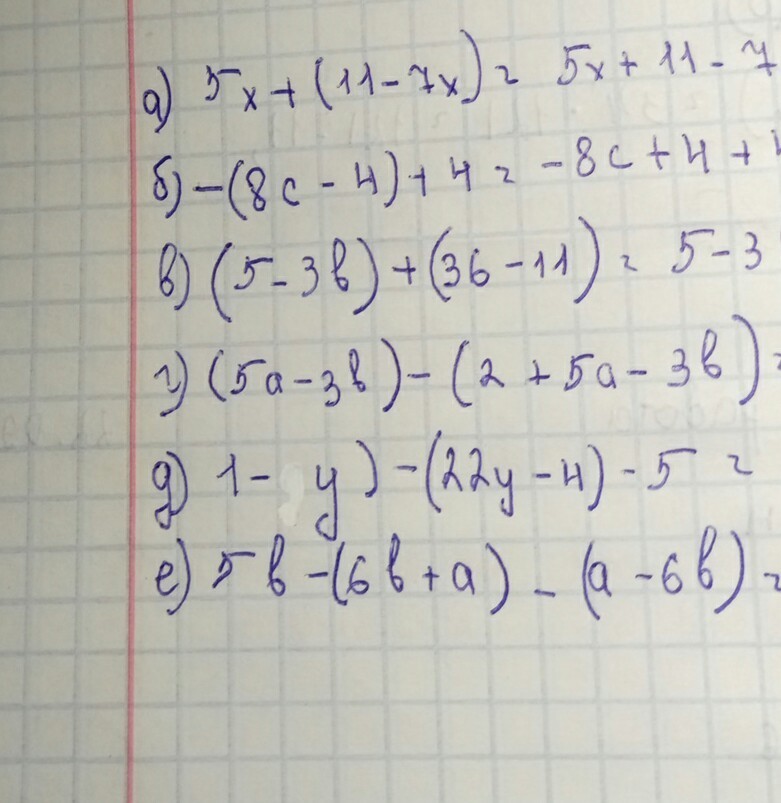 а) 5x + (11 - 7x) = 5x + 11 - 7
б) -(8c - 4) + 4 = -8c + 4 + 4
в) (5 - 3b) + (3b - 11) = 5 - 3
г) (5a - 3b) - (2 + 5a - 3b) =
д) 1 - y) - (22y - 4) - 5 =
е) 5b - (6b + a) - (a - 6b) =